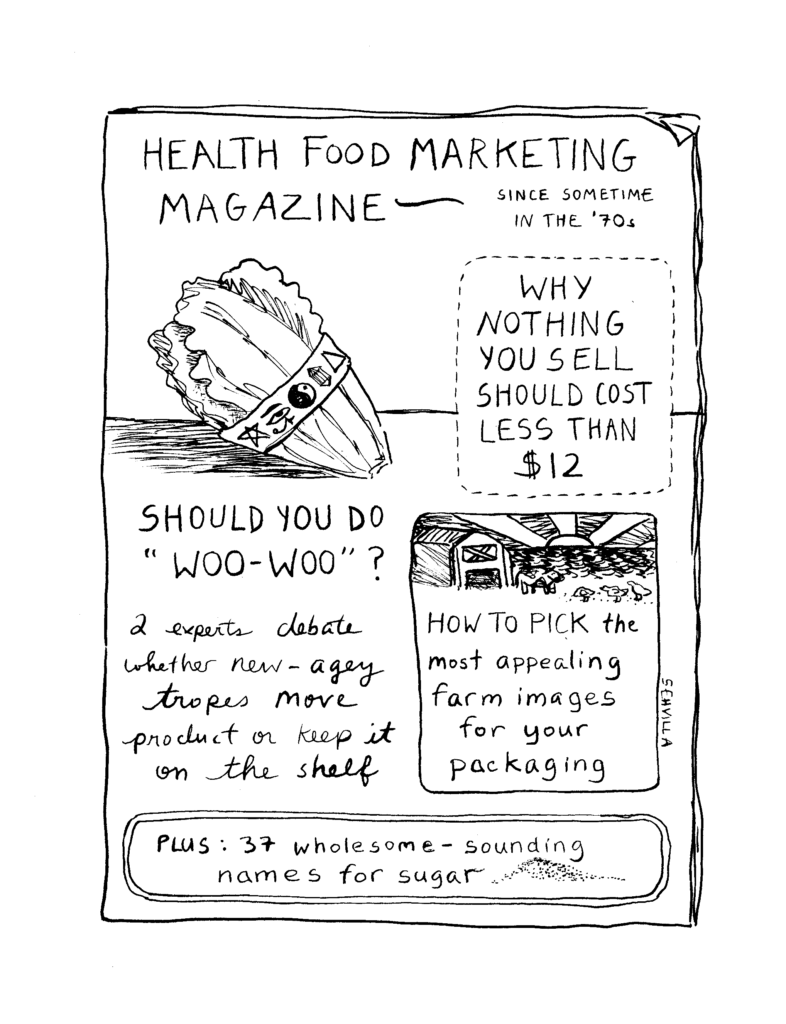 HEALTH FOOD MARKETING
MAGAZINE
SINCE SOMETIME
IN THE '70s
WHY
NOTHING
YOU SELL
SHOULD COST
LESS THAN
$12
SHOULD YOU DO
"WOO-WOO"?
2 experts debate
whether new-agey
tropes move
product or keep it
on the shelf
HOW TO PICK the
most appealing
farm images
for your
packaging
SEHVILLA
PLUS: 37 wholesome-sounding
names for sugar